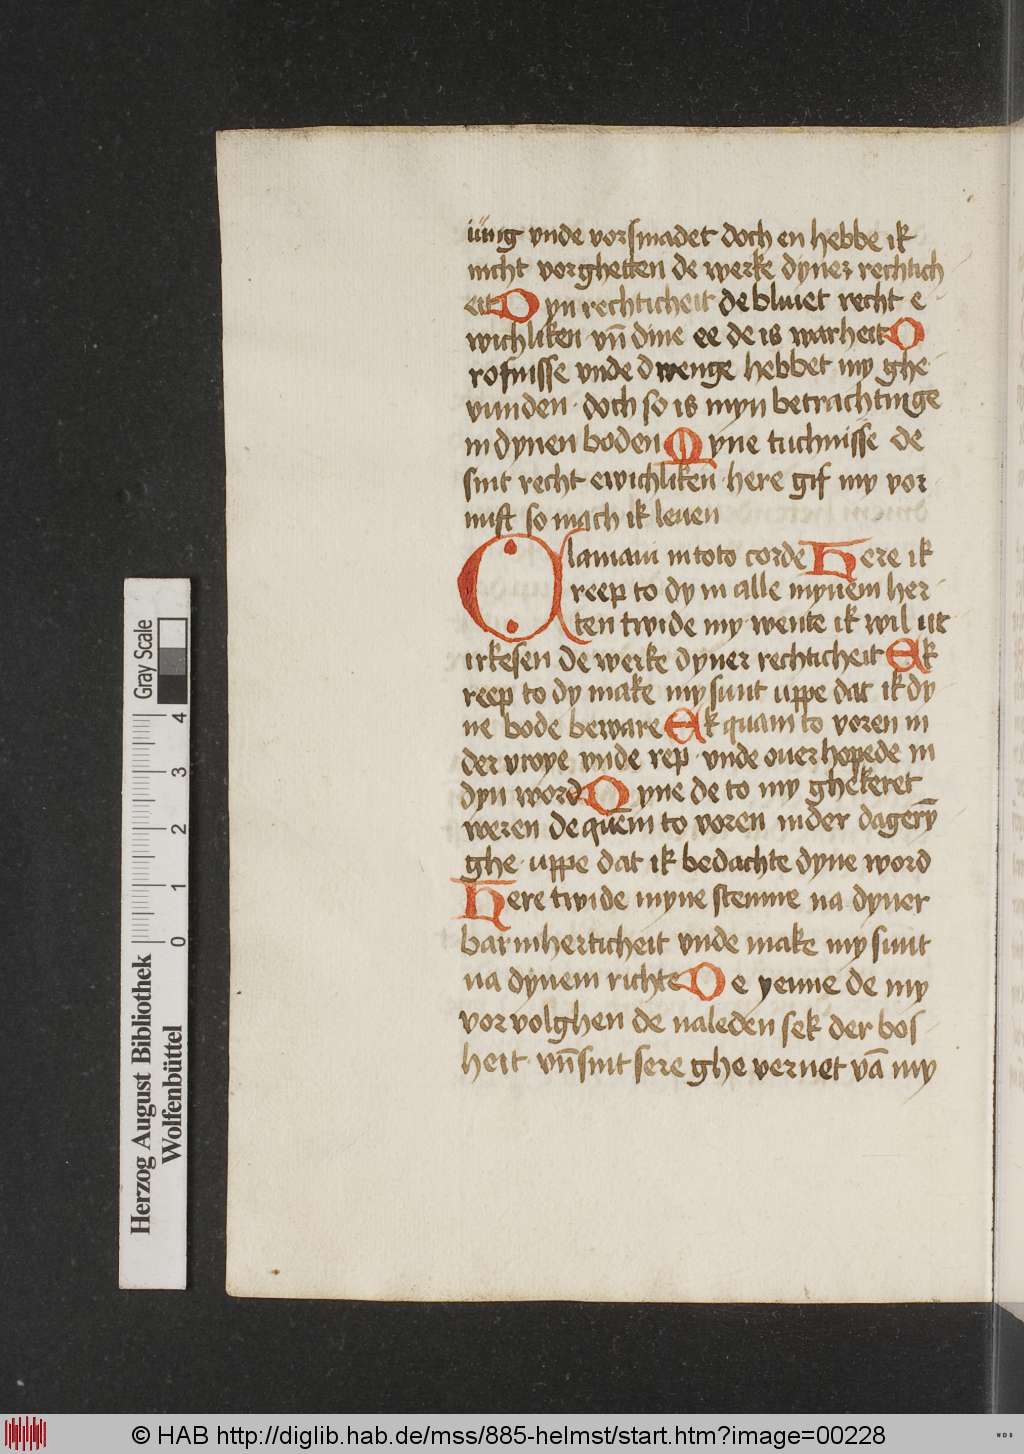 iung vnde vorsmadet doch en hebbe ik
nicht vorghetten de werke dyner rechtich
eit Dyn rechticheit de bliuet recht e
wichliken vn̄ dine ee de is warheit D
rofnisse vnde dwenge hebbet my ghe
vunden · doch so is myn betrachtinge
in dynen boden Dyne tuchnisse de
sint recht ewichliken · here gif my vor
nuft so mach ik leuen
Clamaui in toto corde Here ik
reep to dy in alle mynem her
ten twide my wente ik wil ut
irkesen de werke dyner rechticheit Ek
reep to dy make my sunt uppe dat ik dy
ne bode beware Ek quam to voren in
der vroye vnde rep · vnde ouer hopede in
dyn word Dyne de to my ghekeret
weren de quem to voren in der dagerȳ
ghe · uppe dat ik bedachte dyne word
Here twide myne stemme na dyner
barmherticheit vnde make my sunt
na dynem richte De yenne de my
vor volghen de naleden sek der bos
heit vn̄ sint sere ghe vernet vā my
Herzog August Bibliothek
Wolfenbüttel
0 1 2 3 4
Gray Scale
© HAB http://diglib.hab.de/mss/885-helmst/start.htm?image=00228